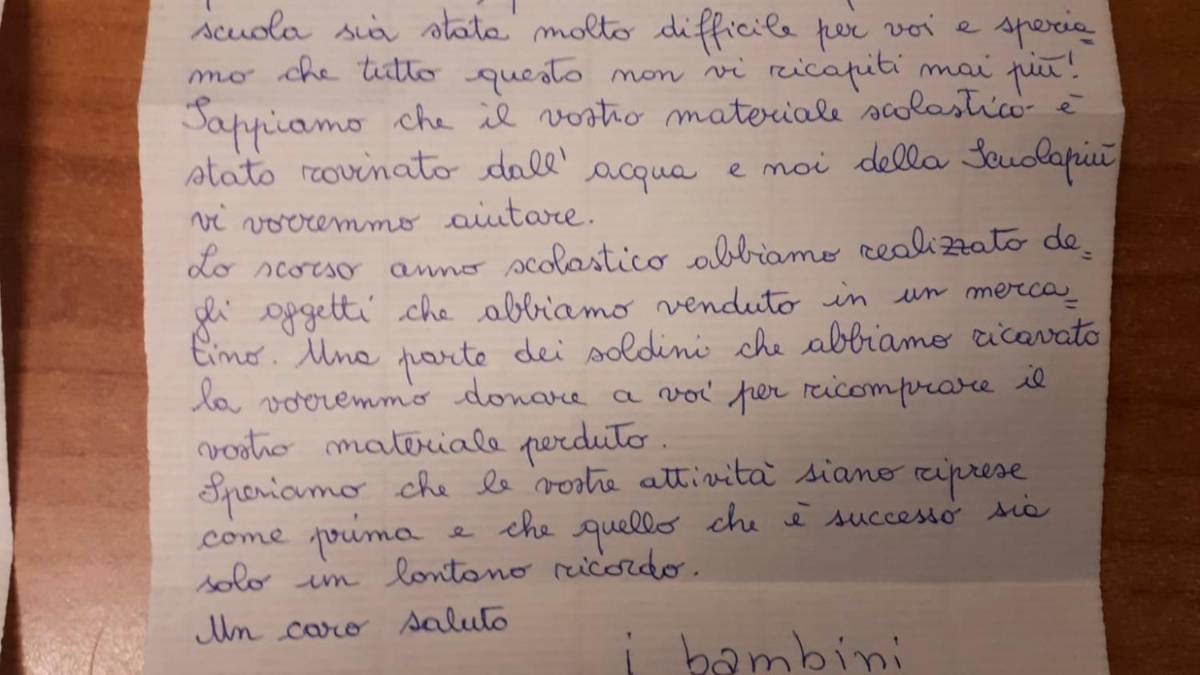 scuola sia stata molto difficile per voi e speria=
mo che tutto questo non vi ricapiti mai più!
Sappiamo che il vostro materiale scolastico è
stato rovinato dall' acqua e noi della Scuolapiù
vi vorremmo aiutare.
Lo scorso anno scolastico abbiamo realizzato de=
gli oggetti che abbiamo venduto in un merca=
tino. Una parte dei soldini che abbiamo ricavato
la vorremmo donare a voi per ricomprare il
vostro materiale perduto.
Speriamo che le vostre attività siano riprese
come prima e che quello che è successo sia
solo un lontano ricordo.
Un caro saluto
i bambini